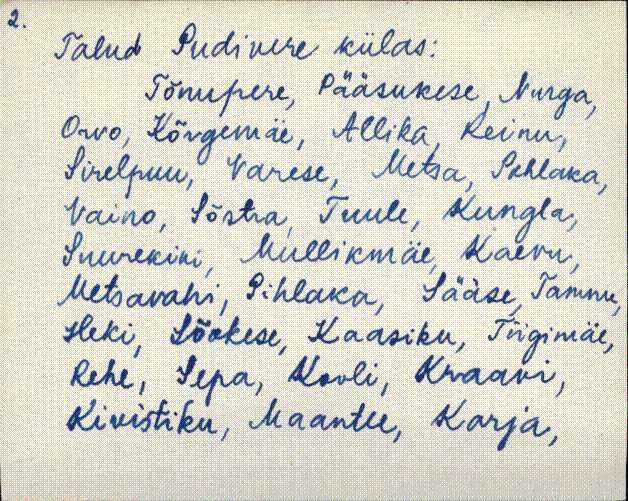 2.
Talud Pudivere külas:
Tõnupere, Pääsukese, Nurga,
Orvo, Kõrgemäe, Allika, Reinu,
Sirelpuu, Varese, Metsa, Pihlaka,
Vaino, Sõstra, Tuule, Kungla,
Suurekivi, Mullikmäe, Kaevu,
Metsavahi, Pihlaka, Sääse, Tammu,
Heki, Lõokese, Kaasiku, Tiigimäe,
Rehe, Sepa, Kooli, Kraavi,
Kivistiku, Maantee, Karja,